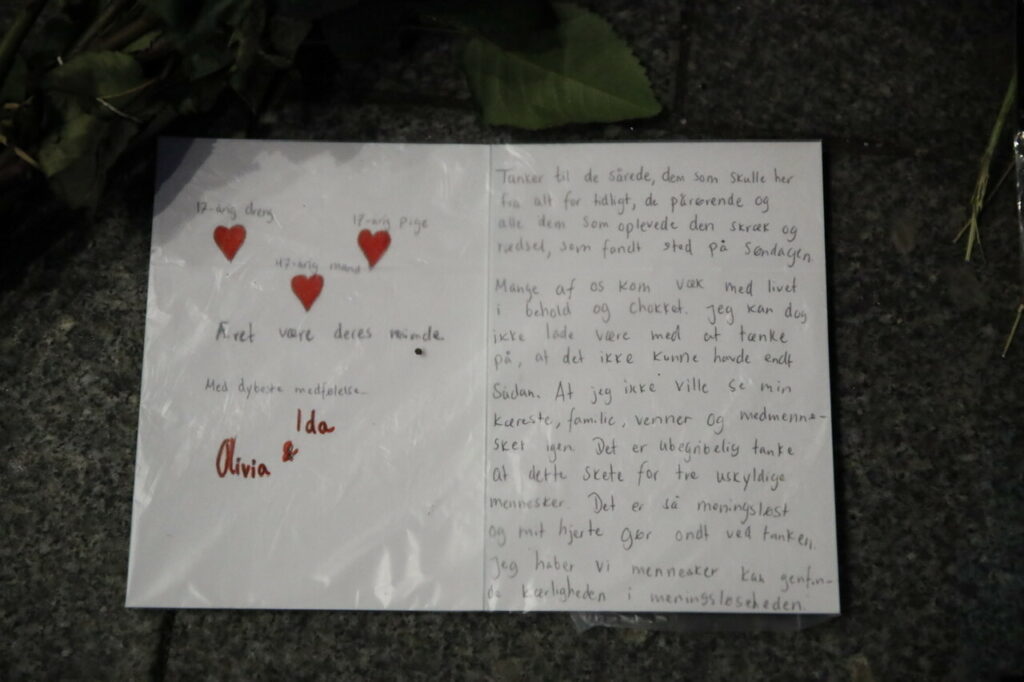 17-årig dreng
17-årig pige
47-årig mand
Æret være deres minde
Med dybeste medfølelse
Ida
&
Olivia
Tanker til de sårede, dem som skulle her
fra alt for tidligt, de pårørende og
alle dem som oplevede den skræk og
rædsel, som fandt sted på Søndagen.
Mange af os kom væk med livet
i behold og chokket. Jeg kan dog
ikke lade være med at tænke
på, at det ikke kunne havde endt
Sådan. At jeg ikke ville se min
kæreste, familie, venner og medmenne-
sker igen. Det er ubegribelig tanke
at dette skete for tre uskyldige
mennesker. Det er så meningsløst
og mit hjerte gør ondt ved tanken.
Jeg håber vi mennesker kan genfin-
de kærligheden i meningsløsheden.